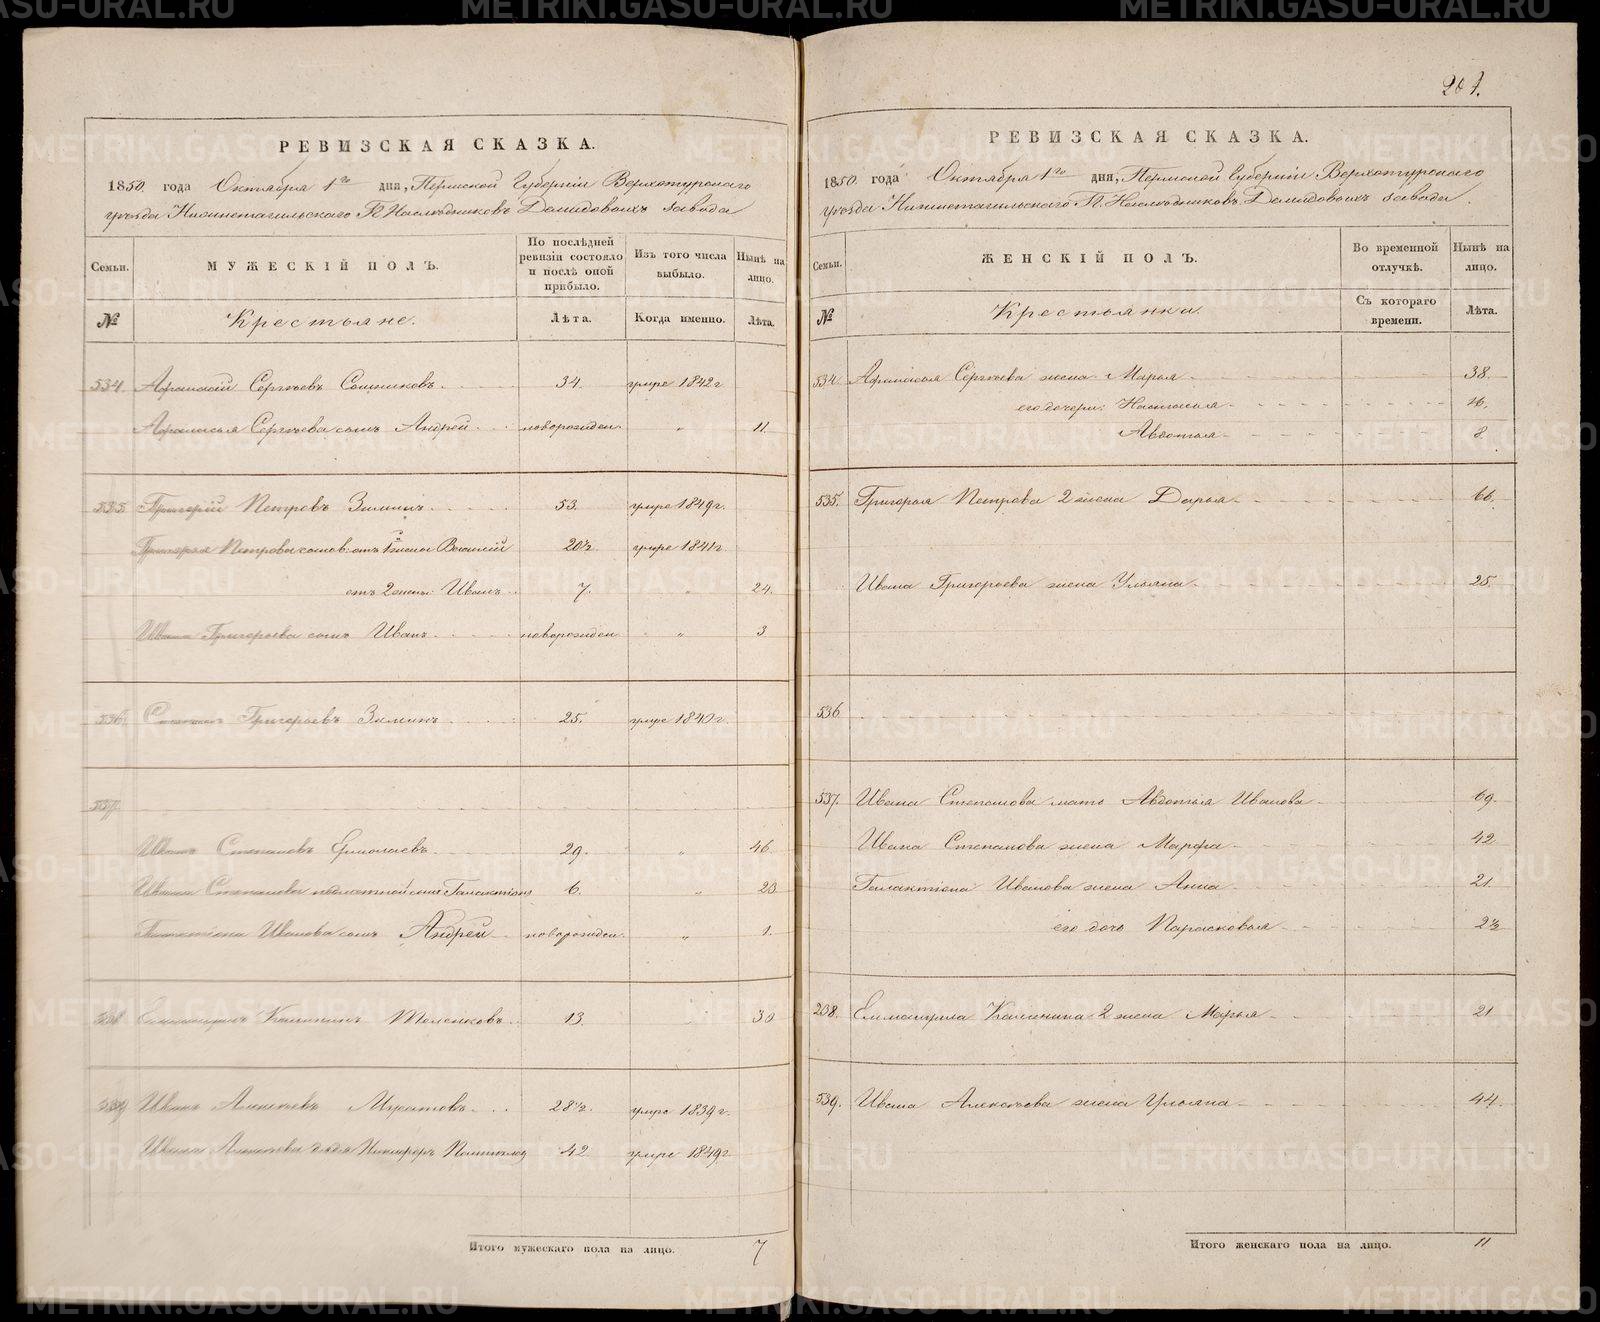 204.
РЕВИЗСКАЯ СКАЗКА.
1850 года Октября 1го дня, Пермской Губерніи Верхотурскаго
уѣзда Нижнетагильскаго Г. Наслѣдниковъ Демидовыхъ завода
Семьи. МУЖЕСКІЙ ПОЛЪ. По послѣдней ревизіи состояло и послѣ оной прибыло. Изъ того числа выбыло. Нынѣ на лицо.
№ Крестьяне. Лѣта. Когда именно. Лѣта.
534. Афанасій Сергѣевъ Сошниковъ 34. умре 1842 г
Афанасья Сергѣева сынъ Андрей новорожден. " 11.
535 Григорій Петровъ Зиминъ 53. умре 1849 г.
Григорья Петрова сынов: отъ 1 жены Василій 20½ умре 1841 г
отъ 2 жены: Иванъ 7. " 24.
Ивана Григорьева сынъ Иванъ новорожден " 3
536. Степанъ Григорьевъ Зиминъ 25. умре 1840 г.
537.
Иванъ Степановъ Ермолаевъ 29. " 46.
Ивана Степанова подметной сынъ Галактіонъ 6. " 23
Галактіона Иванова сынъ Андрей новорожден. " 1.
538 Еммануилъ Калининъ 13. " 30
539 Иванъ Алексѣевъ Муратовъ 28½. умре 1839 г.
Ивана Алексѣева дядя Никифоръ 42 умре 1849 г
Итого мужескаго пола на лицо. 7
РЕВИЗСКАЯ СКАЗКА.
1850 года Октября 1го дня, Пермской Губерніи Верхотурскаго
уѣзда Нижнетагильскаго Г. Наслѣдниковъ Демидовыхъ завода.
Семьи. ЖЕНСКІЙ ПОЛЪ. Во временной отлучкѣ. Нынѣ на лицо.
№ Крестьянки. Съ котораго времени. Лѣта.
534. Афанасья Сергѣева жена Марья 38.
его дочери: Настасья 16.
Авдотья 8.
535. Григорья Петрова 2 жена Дарья 66.
Ивана Григорьева жена Ульяна 25.
536
537. Ивана Степанова мать Авдотья Иванова 69.
Ивана Степанова жена Марфа 42
Галактіона Иванова жена Анна 21.
его дочь Парасковья 2½
238. Еммануила Калинина 2 жена Марья 21
539. Ивана Алексѣева жена Ульяна 44.
Итого женскаго пола на лицо. 11
METRIKI.GASO-URAL.RU